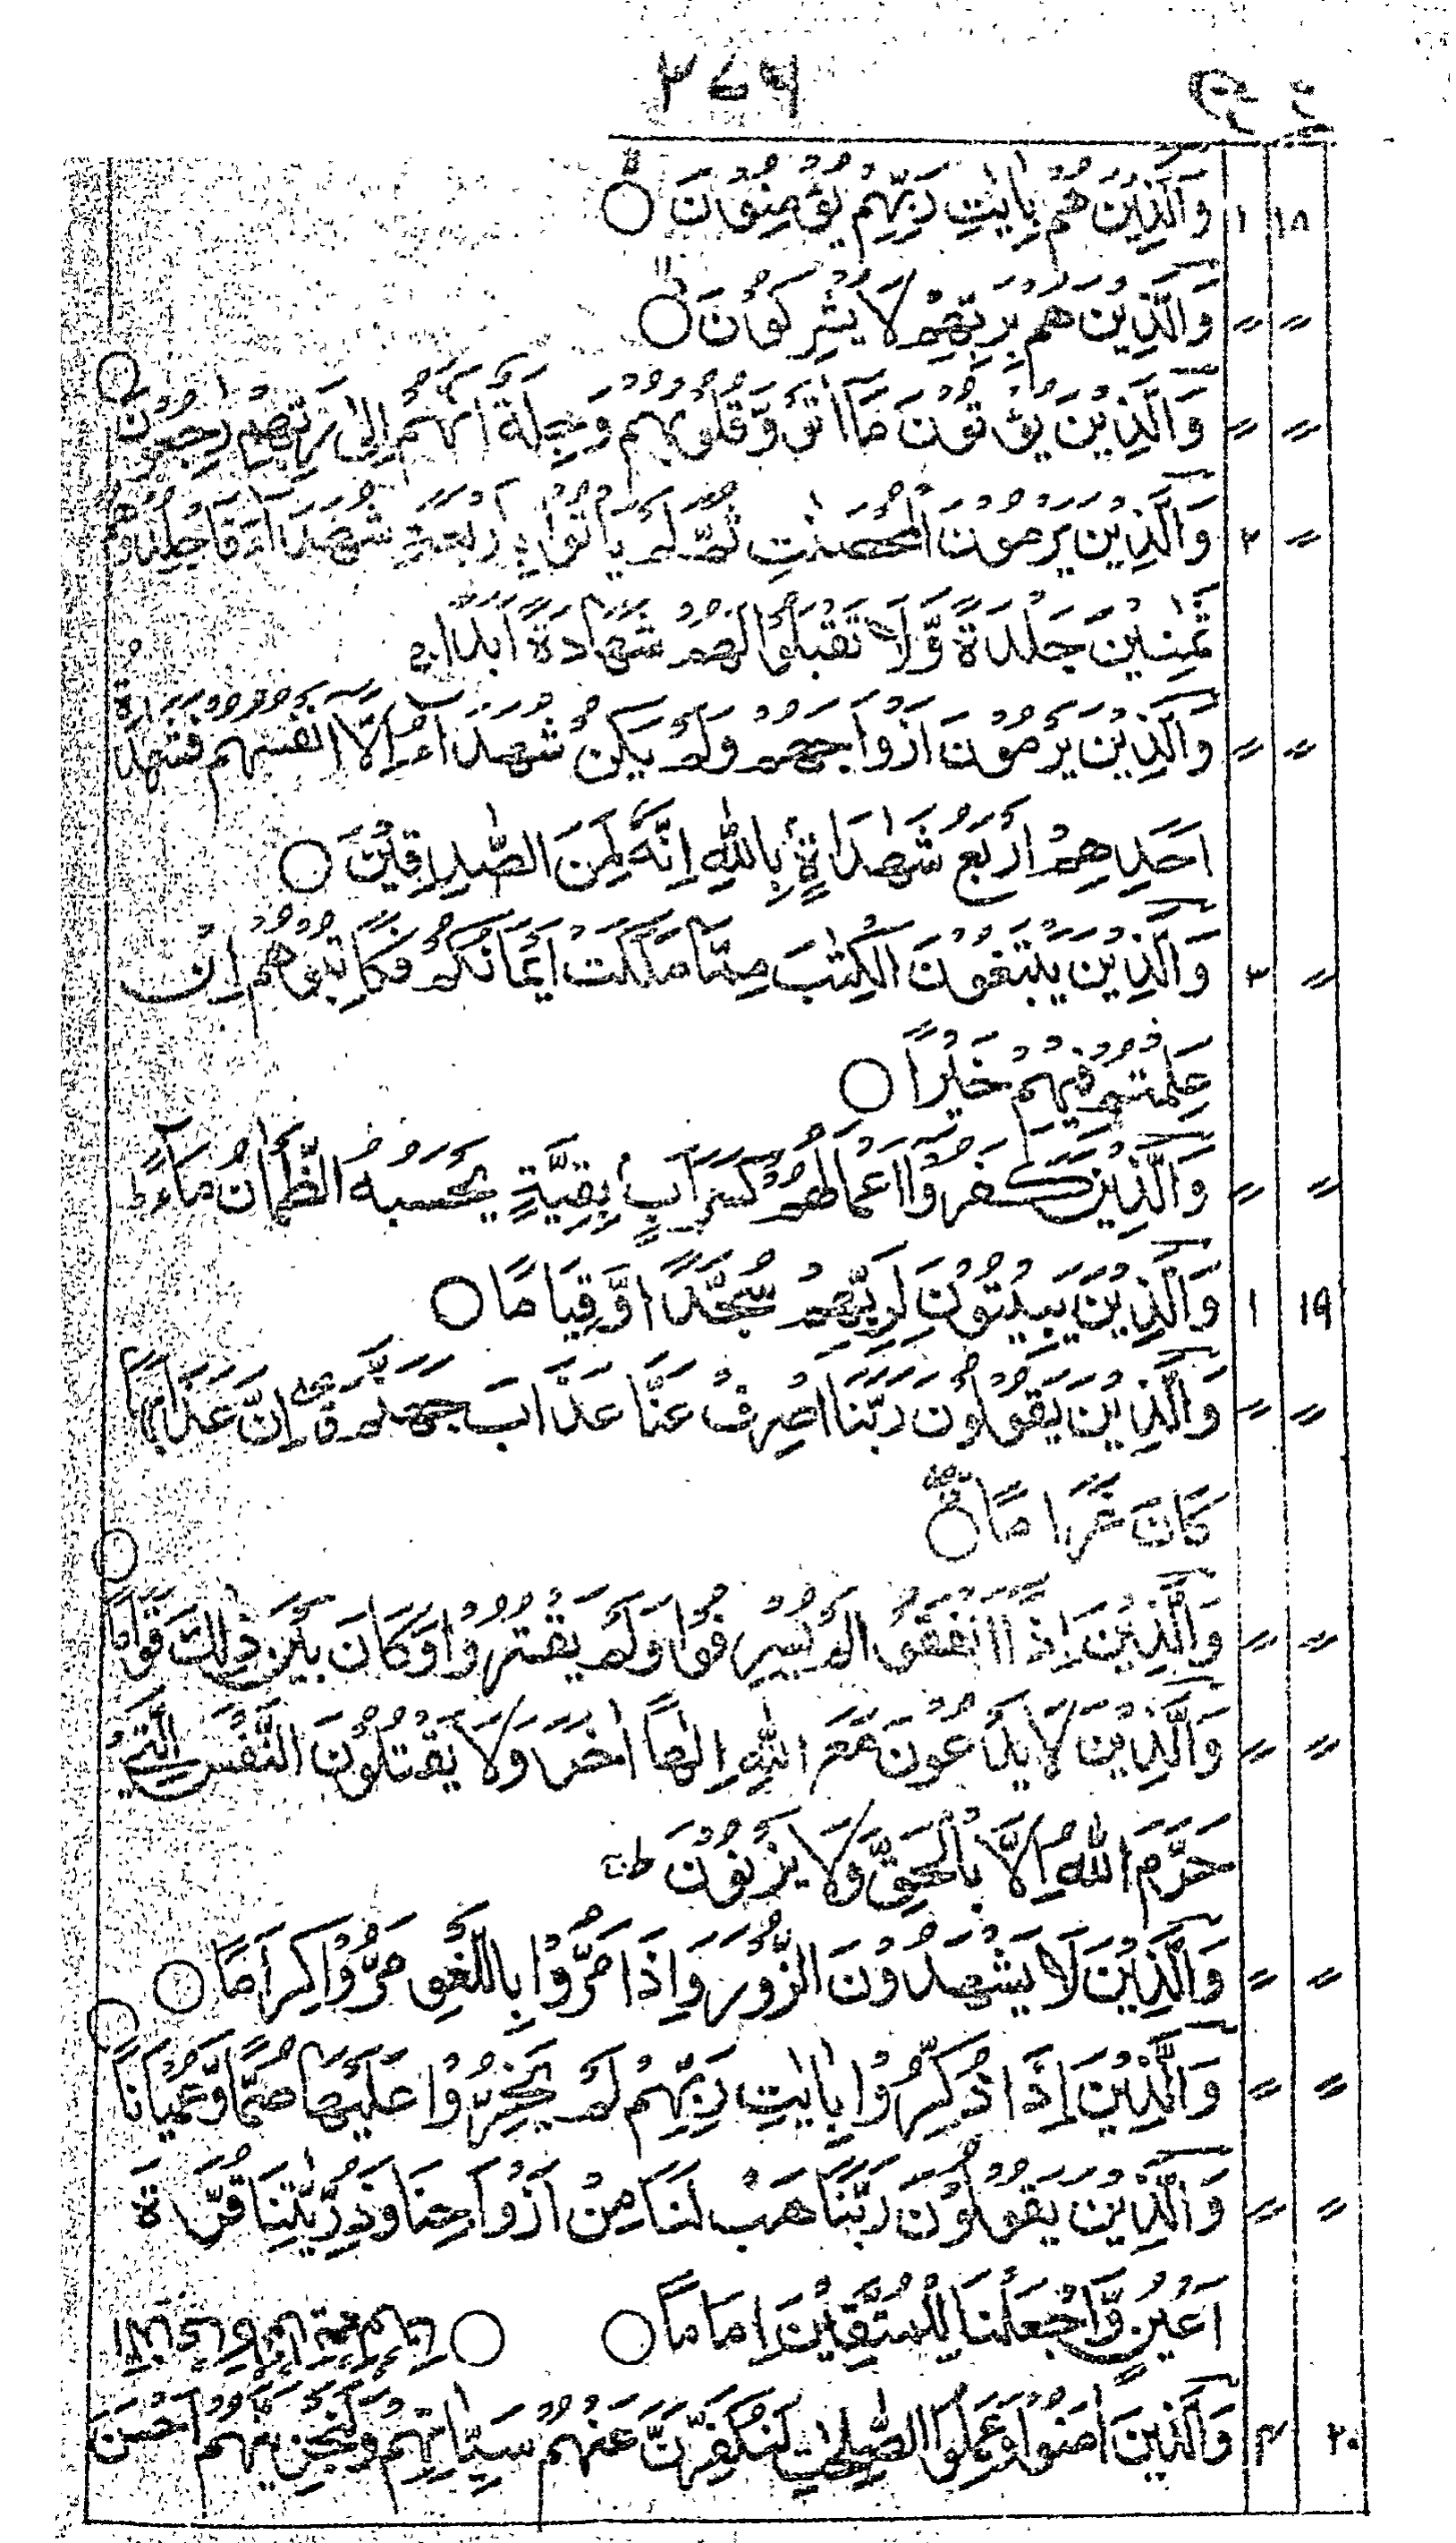 ٣٧٩
١٨ ١ وَالَّذِيْنَ هُمْ بِاٰيٰتِ رَبِّهِمْ يُؤْمِنُوْنَ ○
〃 〃 وَالَّذِيْنَ هُمْ بِرَبِّهِمْ لَا يُشْرِكُوْنَ ○
〃 〃 وَالَّذِيْنَ يُؤْتُوْنَ مَآ اٰتَوْ وَّقُلُوْبُهُمْ وَجِلَةٌ اَنَّهُمْ اِلٰى رَبِّهِمْ رٰجِعُوْنَ ○
〃 ٢ وَالَّذِيْنَ يَرْمُوْنَ الْمُحْصَنٰتِ ثُمَّ لَمْ يَاْتُوْا بِاَرْبَعَةِ شُهَدَآءَ فَاجْلِدُوْهُمْ
ثَمٰنِيْنَ جَلْدَةً وَّلَا تَقْبَلُوْا لَهُمْ شَهَادَةً اَبَدًا ج
〃 〃 وَالَّذِيْنَ يَرْمُوْنَ اَزْوَاجَهُمْ وَلَمْ يَكُنْ شُهَدَآءُ اِلَّآ اَنْفُسُهُمْ فَشَهَادَةُ
اَحَدِهِمْ اَرْبَعُ شَهٰدَاةٍ بِاللّٰهِ اِنَّهٗ لَمِنَ الصّٰدِقِيْنَ ○
〃 ٣ وَالَّذِيْنَ يَبْتَغُوْنَ الْكِتٰبَ مِمَّا مَلَكَتْ اَيْمَانُكُمْ فَكَاتِبُوْهُمْ اِنْ
عَلِمْتُمْ فِيْهِمْ خَيْرًا ○
〃 〃 وَالَّذِيْنَ كَفَرُوْٓا اَعْمَالُهُمْ كَسَرَابٍ بِقِيْعَةٍ يَحْسَبُهُ الظَّمْاٰنُ مَآءً ط
١٩ ١ وَالَّذِيْنَ يَبِيْتُوْنَ لِرَبِّهِمْ سُجَّدًا وَّقِيَامًا ○
〃 〃 وَالَّذِيْنَ يَقُوْلُوْنَ رَبَّنَا اصْرِفْ عَنَّا عَذَابَ جَهَنَّمَ ق اِنَّ عَذَابَهَا
كَانَ غَرَامًا ○
〃 〃 وَالَّذِيْنَ اِذَآ اَنْفَقُوْا لَمْ يُسْرِفُوْا وَلَمْ يَقْتُرُوْا وَكَانَ بَيْنَ ذٰلِكَ قَوَامًا ○
〃 〃 وَالَّذِيْنَ لَا يَدْعُوْنَ مَعَ اللّٰهِ اِلٰهًا اٰخَرَ وَلَا يَقْتُلُوْنَ النَّفْسَ الَّتِيْ
حَرَّمَ اللّٰهُ اِلَّا بِالْحَقِّ وَلَا يَزْنُوْنَ ج
〃 〃 وَالَّذِيْنَ لَا يَشْهَدُوْنَ الزُّوْرَ وَاِذَا مَرُّوْا بِاللَّغْوِ مَرُّوْا كِرَامًا ○
〃 〃 وَالَّذِيْنَ اِذَا ذُكِّرُوْا بِاٰيٰتِ رَبِّهِمْ لَمْ يَخِرُّوْا عَلَيْهَا صُمًّا وَّعُمْيَانًا ○
〃 〃 وَالَّذِيْنَ يَقُوْلُوْنَ رَبَّنَا هَبْ لَنَا مِنْ اَزْوَاجِنَا وَذُرِّيّٰتِنَا قُرَّةَ
اَعْيُنٍ وَّاجْعَلْنَا لِلْمُتَّقِيْنَ اِمَامًا ○
٢٠ ٣ وَالَّذِيْنَ اٰمَنُوْا وَعَمِلُوا الصّٰلِحٰتِ لَنُكَفِّرَنَّ عَنْهُمْ سَيِّاٰتِهِمْ وَلَنَجْزِيَنَّهُمْ اَحْسَنَ